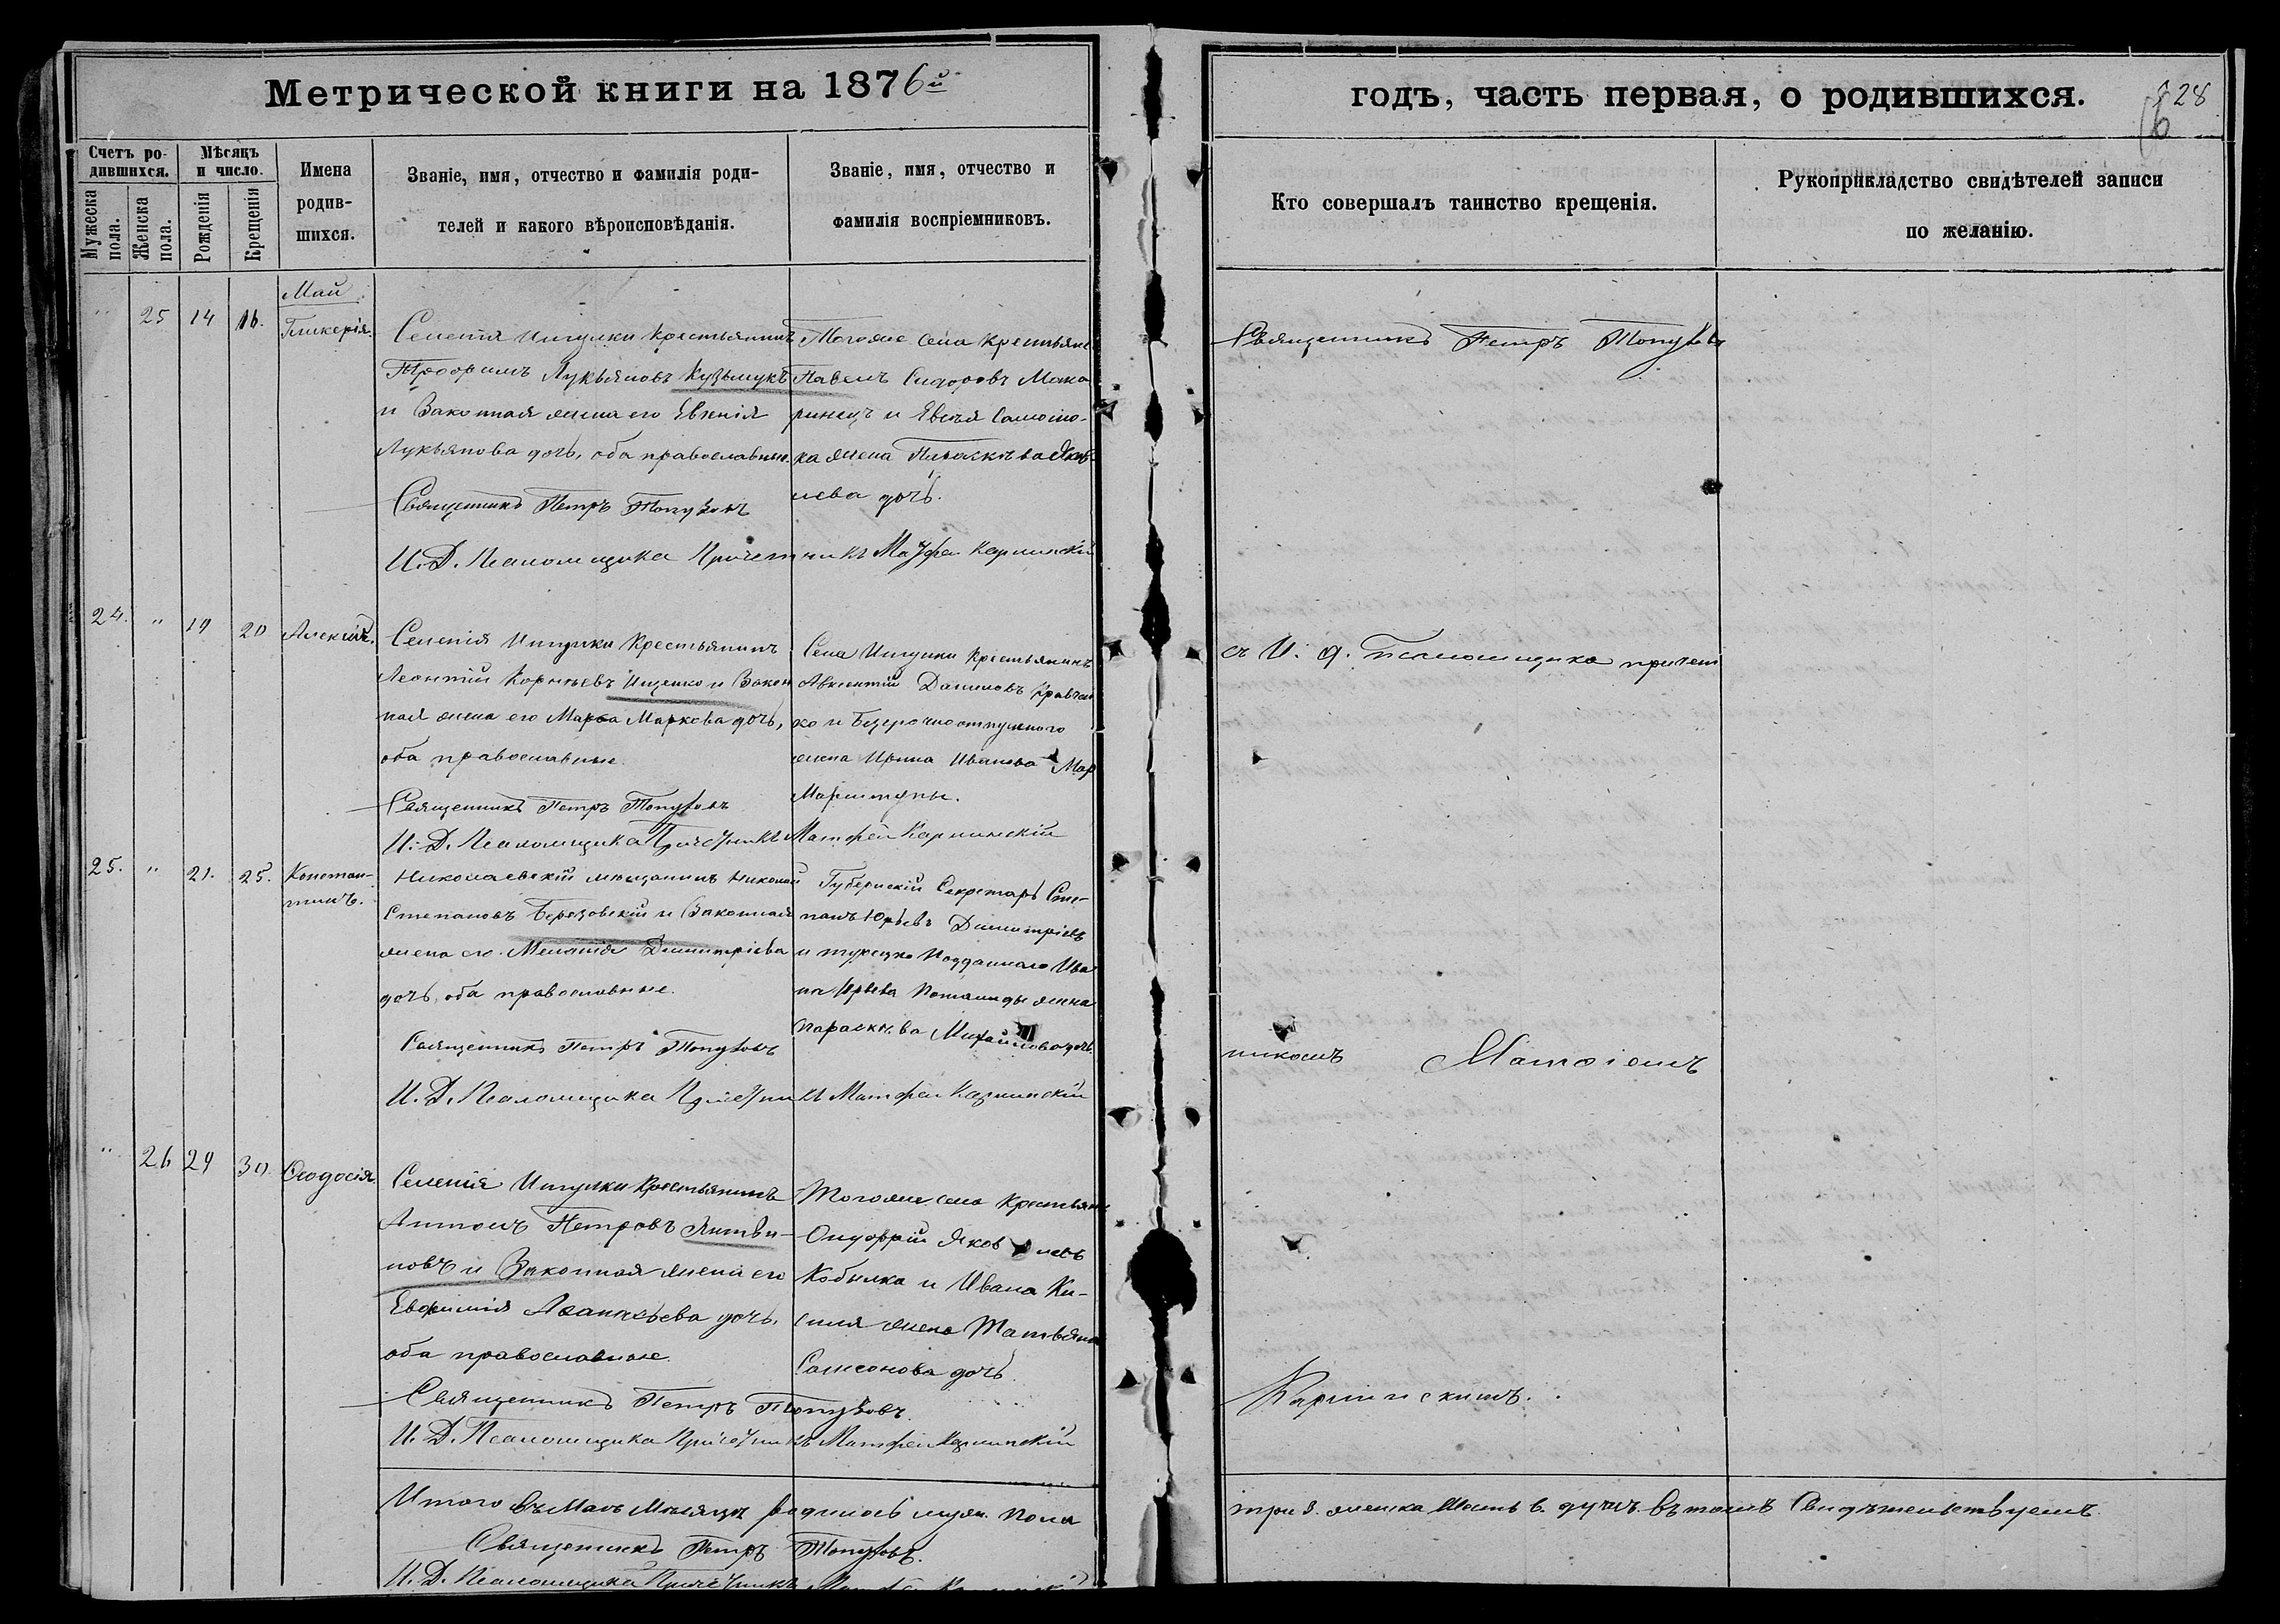 Метрической книги на 1876й
годъ, часть первая, о родившихся.
128
Счетъ ро-
дившихся.
Мужеска
пола.
Женска
пола.
Мѣсяцъ
и число.
Рожденія
Крещенія
Имена
родив-
шихся.
Званіе, имя, отчество и фамилія роди-
телей и какого вѣроисповѣданія.
Званіе, имя, отчество и
фамилія воспріемниковъ.
Кто совершалъ таинство крещенія.
Рукоприкладство свидѣтелей записи
по желанію.
Май
" 25 14 16. Гликерія.
Селенія Ингулки Крестьянинъ
Трофимъ Лукьяновъ Кузьмукъ
и Законная жена его Евгенія
Лукьянова дочь, оба православные.
Священникъ Петръ Топузовъ
И. Д. Псаломщика Причетникъ Матфей Карминскій
Тогоже села Крестьяне
Павелъ Сидоровъ Мака-
ринецъ и
жена
дочь.
Священникъ Петръ Топузовъ
24. " 19 20 Алексій.
Селенія Ингулки Крестьянинъ
Леонтій Корнѣевъ Ищенко и Закон
ная жена его Марѳа Маркова дочь,
оба православные.
Священникъ Петръ Топузовъ
И. Д. Псаломщика Причетникъ Матфей Карминскій
Села Ингулки Крестьянинъ
Авксентій Даниловъ Кравчен
ко и Безсрочноотпускного
жена Ирина Иванова
съ И. д. Псаломщика причет
25. " 21. 25. Констан-
тинъ.
Николаевскій мѣщанинъ Николай
Степановъ Березовскій и Законная
жена его Меланія Димитріева
дочь, оба православные.
Священникъ Петръ Топузовъ
И. Д. Псаломщика Причетникъ Матфей Карминскій
Губернскій Секретарь Сте-
панъ Юрьевъ Димитріевъ
и турецко Подданнаго Ива
на жена
Параскева Михайлова дочь.
никомъ Матѳіемъ
" 26 29 30. Ѳеодосія.
Селенія Ингулки Крестьянинъ
Антонъ Петровъ Литви-
новъ и Законная жена его
Евфимія Аѳанасьева дочь,
оба православные.
Священникъ Петръ Топузовъ
И. Д. Псаломщика Причетникъ Матфей Карминскій
Тогоже села Крестьяне
Онуфрій Яковлевъ
Кобылка и Ивана Ки-
жена Татьяна
Самсонова дочь.
Карминскимъ.
Итого въ Маѣ Мѣсяцѣ родилось муж. пола
три 3. женска шесть 6. душъ. Въ томъ Свидѣтельствуемъ
Священникъ Петръ Топузовъ.
И. Д. Псаломщика Причетникъ